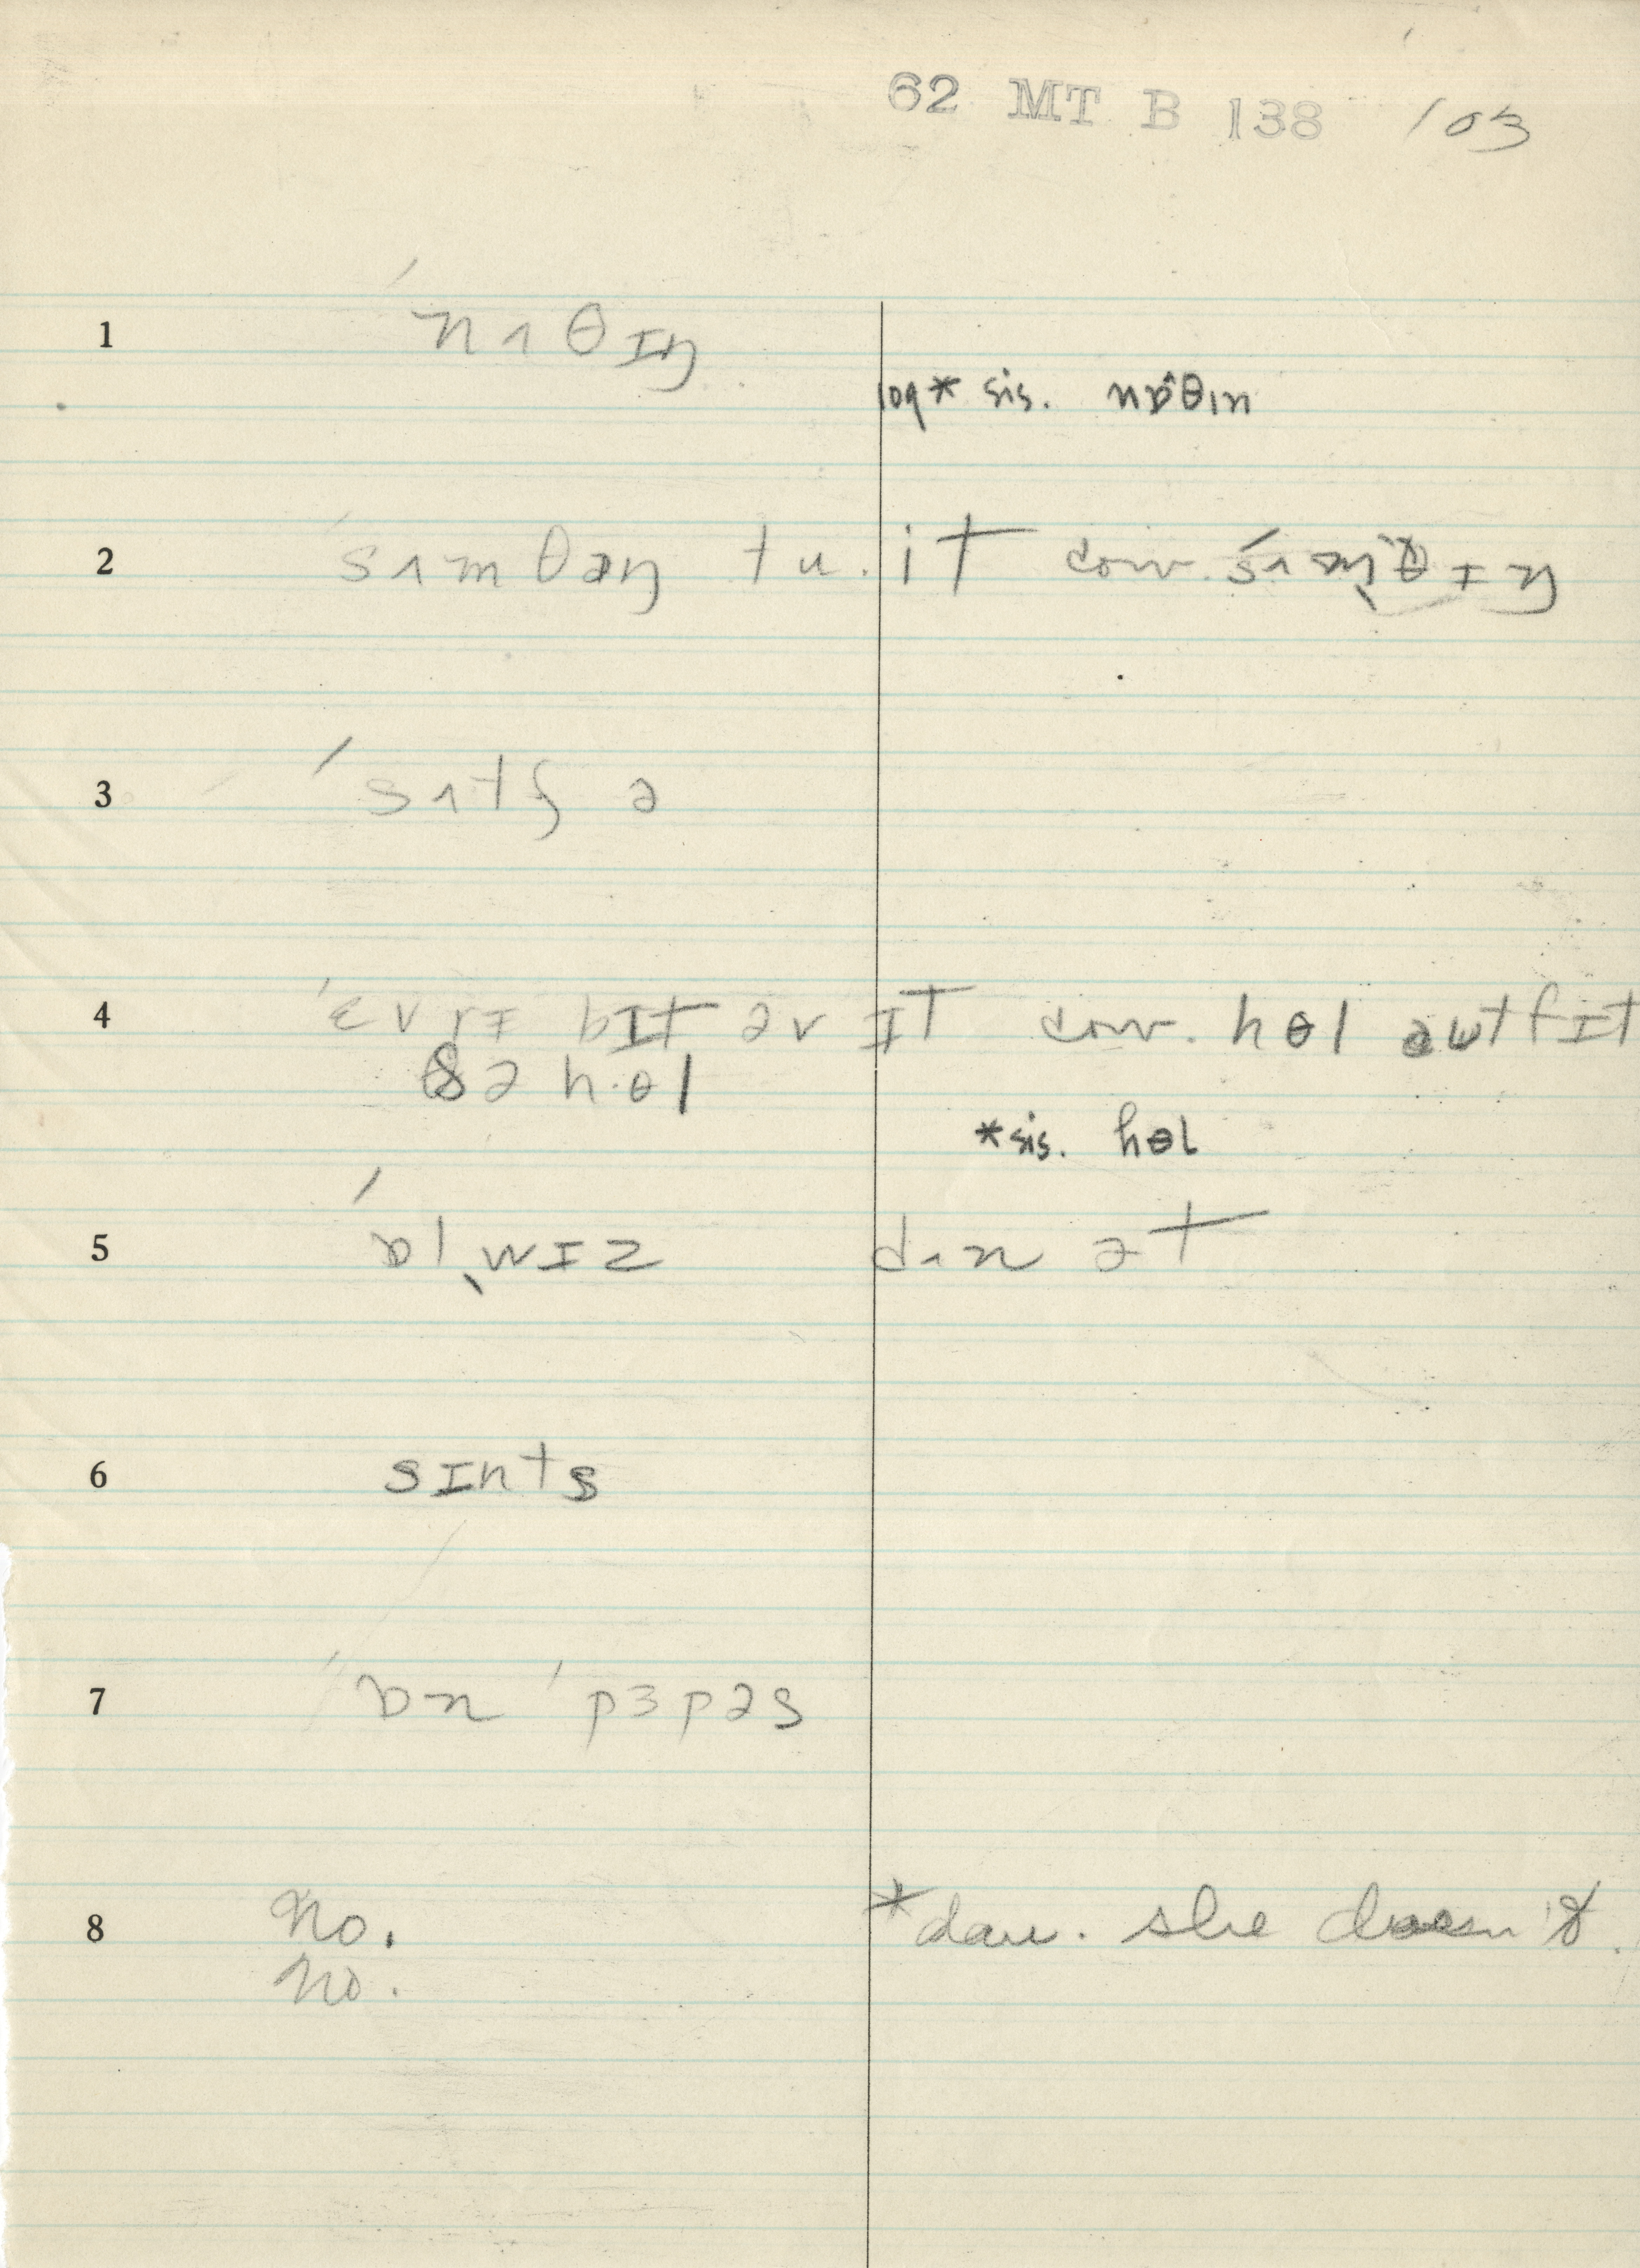 62 MT B 138 103
1 ˈnʌθɪŋ
log* sis. nɒ^θɪn
2 ˈsʌmθəŋ tu. it conv. ˈsʌm̩θɪŋ
3 ˈsʌtʃ ə
4 ˈɛvrɪ bɪt əv ɪt conv. hɵl əutfɪt
ðə hɵl
*sis. hɵl
5 ˈɒlˌwɪz dʌn ət
6 sɪnts
7 ˈɒn ˈpɜpəs
8 no. *dau. she doesn't.
no.